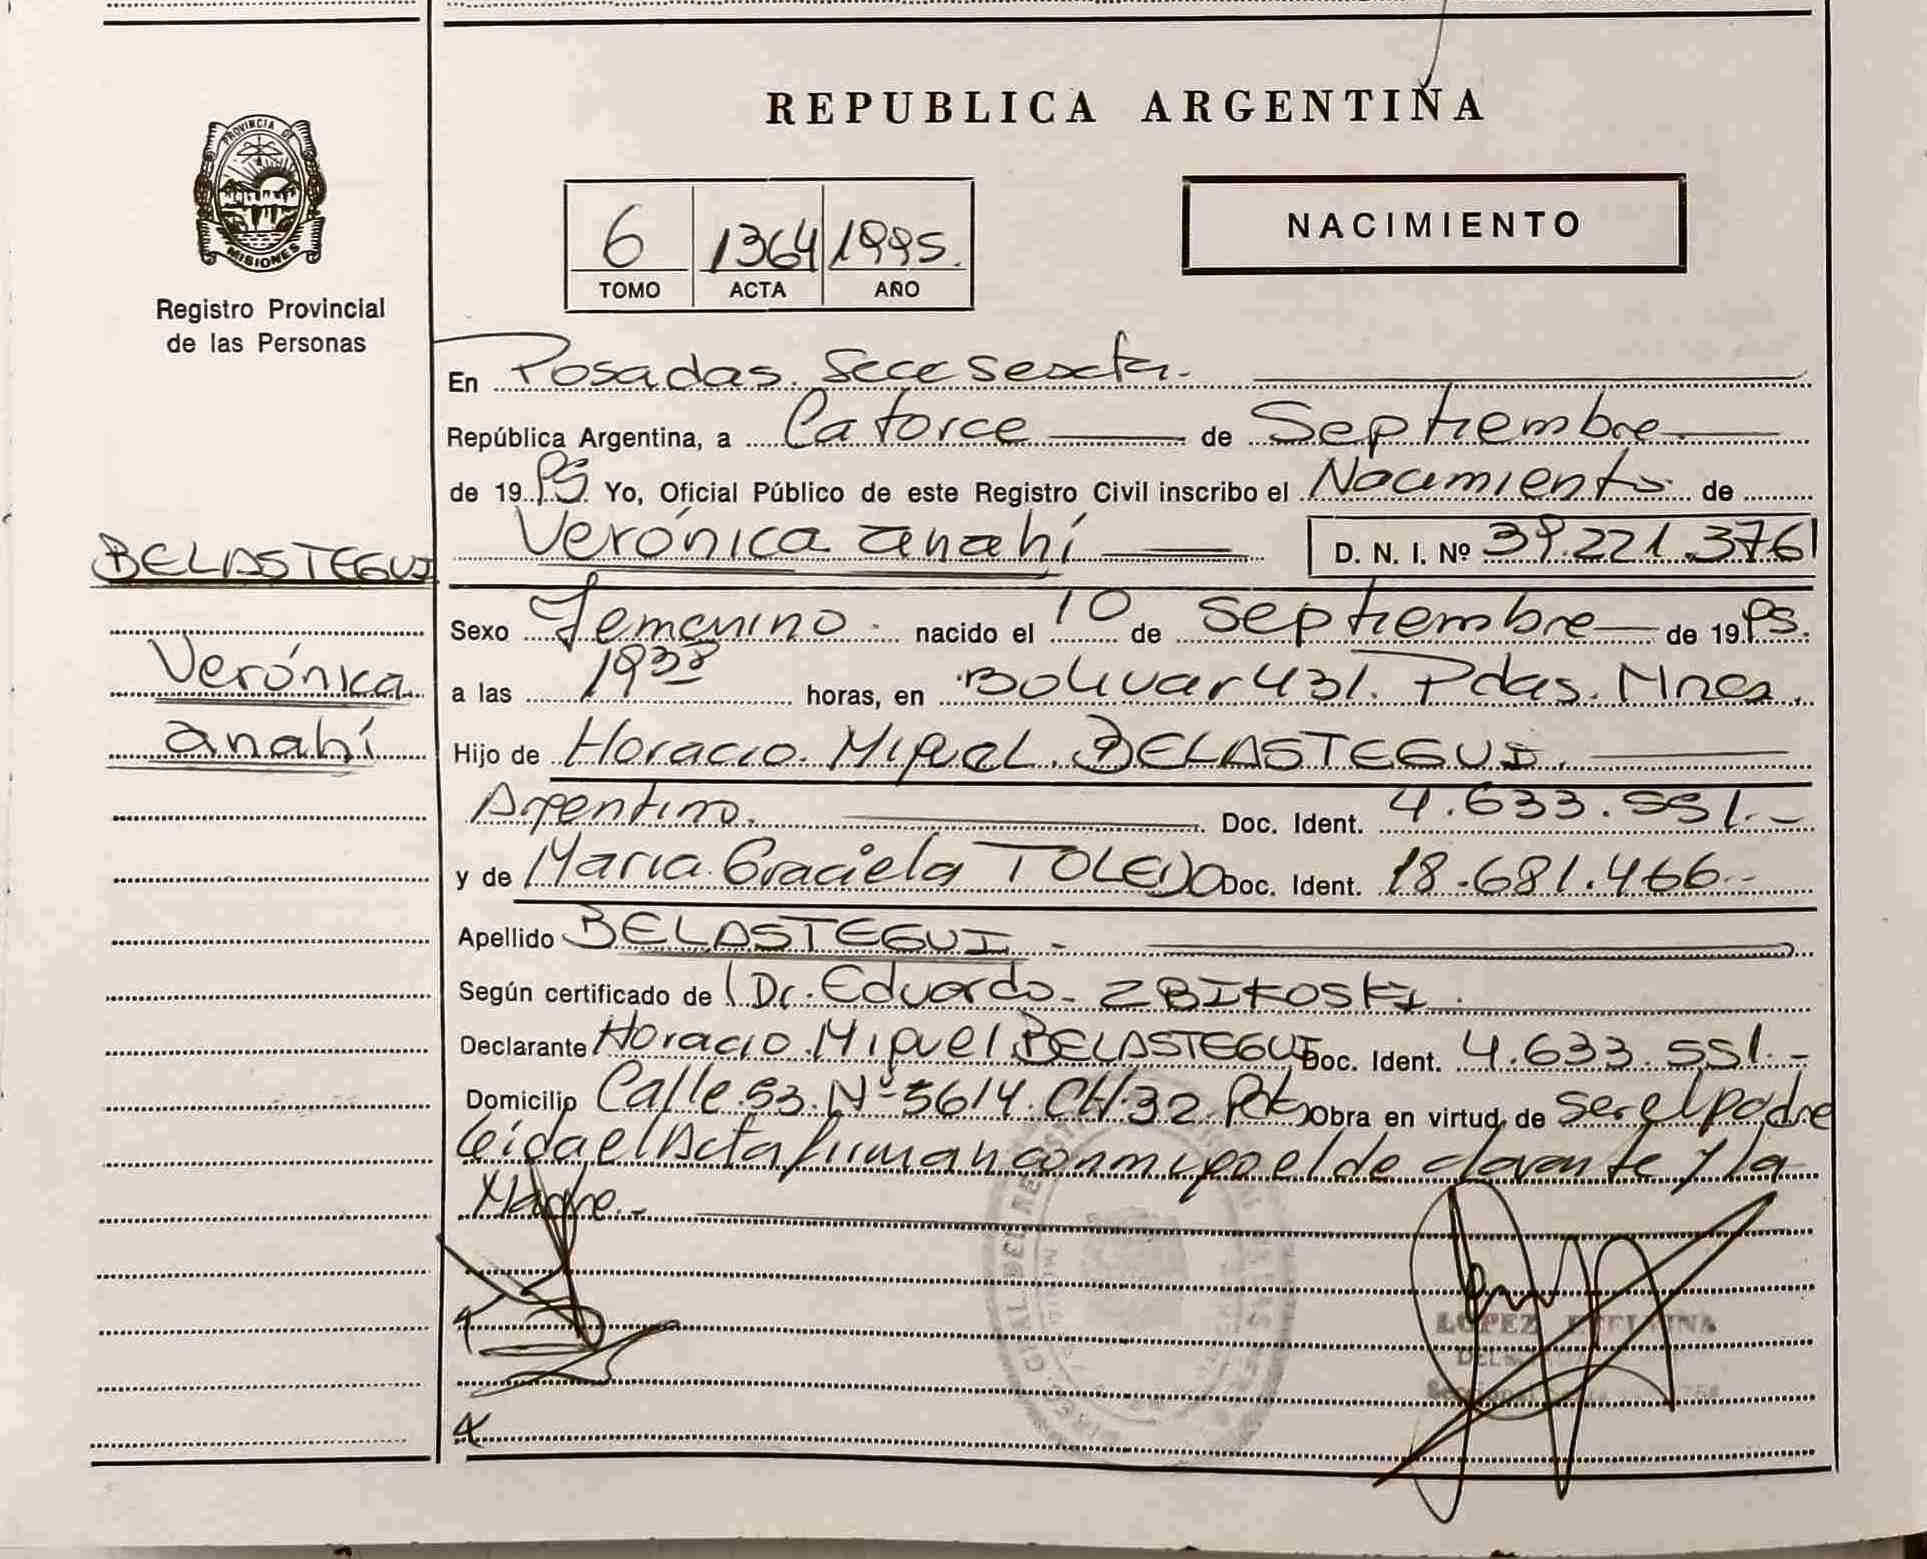 REPUBLICA ARGENTINA
PROVINCIA DE
MISIONES
Registro Provincial
de las Personas
NACIMIENTO
6 1364 1995.
TOMO ACTA AÑO
En Posadas. Secc sexta.
República Argentina, a Catorce de Septiembre
de 1995 Yo, Oficial Público de este Registro Civil inscribo el Nacimiento de
Verónica anahí D. N. I. Nº 39.221.376
BELASTEGUI
Verónica
anahí
Sexo Femenino. nacido el 10 de Septiembre de 1995.
a las 1938 horas, en Bolivar 431. Pdas. Mnes.
Hijo de Horacio Miguel. BELASTEGUI.
Argentino. Doc. Ident. 4.633.551.-
y de Maria Graciela TOLEDO Doc. Ident. 18.681.466-
Apellido BELASTEGUI -
Según certificado de Dr. Eduardo ZBIKOSKI.
Declarante Horacio Miguel BELASTEGUI Doc. Ident. 4.633.551.-
Domicilio Calle 53. Nº 5614. CH.32. Obra en virtud de ser el padre
leida el Acta firman conmigo el declarante y la
Madre.-
LOPEZ